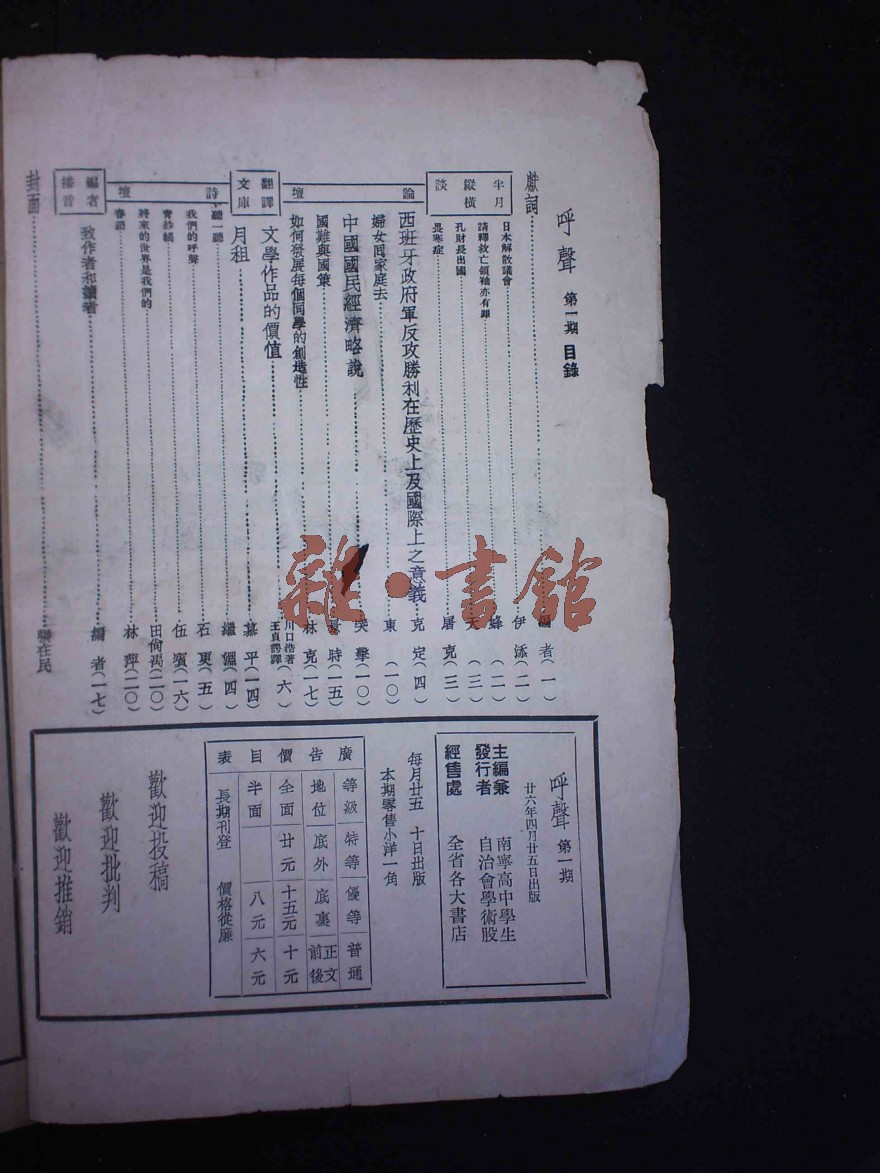 呼聲 第一期 目錄
獻詞 編者(一)
半月縱橫談
日本解散議會 伊添(二)
請釋救亡領袖亦有罪 蜂(二)
孔財長出國 天(三)
畏寒症 屠克(三)
論壇
西班牙政府軍反攻勝利在歷史上及國際上之意義 克定(四)
婦女回家庭去 東(一〇)
中國國民經濟略說 突擊(一〇)
國難與國策 時(一五)
如何發展每個同學的創造性 林克(一七)
翻譯文庫
文學作品的價值 川口浩著 王貞諤譯(六)
月租 慕平(一四)
詩壇
聽一聽 繼個(四)
我們的呼聲 石更(五)
青紗帳 伍賓(一六)
將來的世界是我們的 田倘褐(二〇)
春語 林萍(二〇)
編者播音
致作者和讀者 編者(一七)
封面 在民
呼聲 第一期
廿六年四月廿五日出版
主編兼發行者 南寧高中學生自治會學術股
經售處 全省各大書店
每月廿五 十日出版
本期零售小洋一角
廣告價目表
等級 特等 優等 普通
地位 底外 底裏 正文前後
全面 廿元 十五元 十元
半面 八元 六元
長期刊登 價格從廉
歡迎投稿
歡迎批判
歡迎推銷
雜·書館